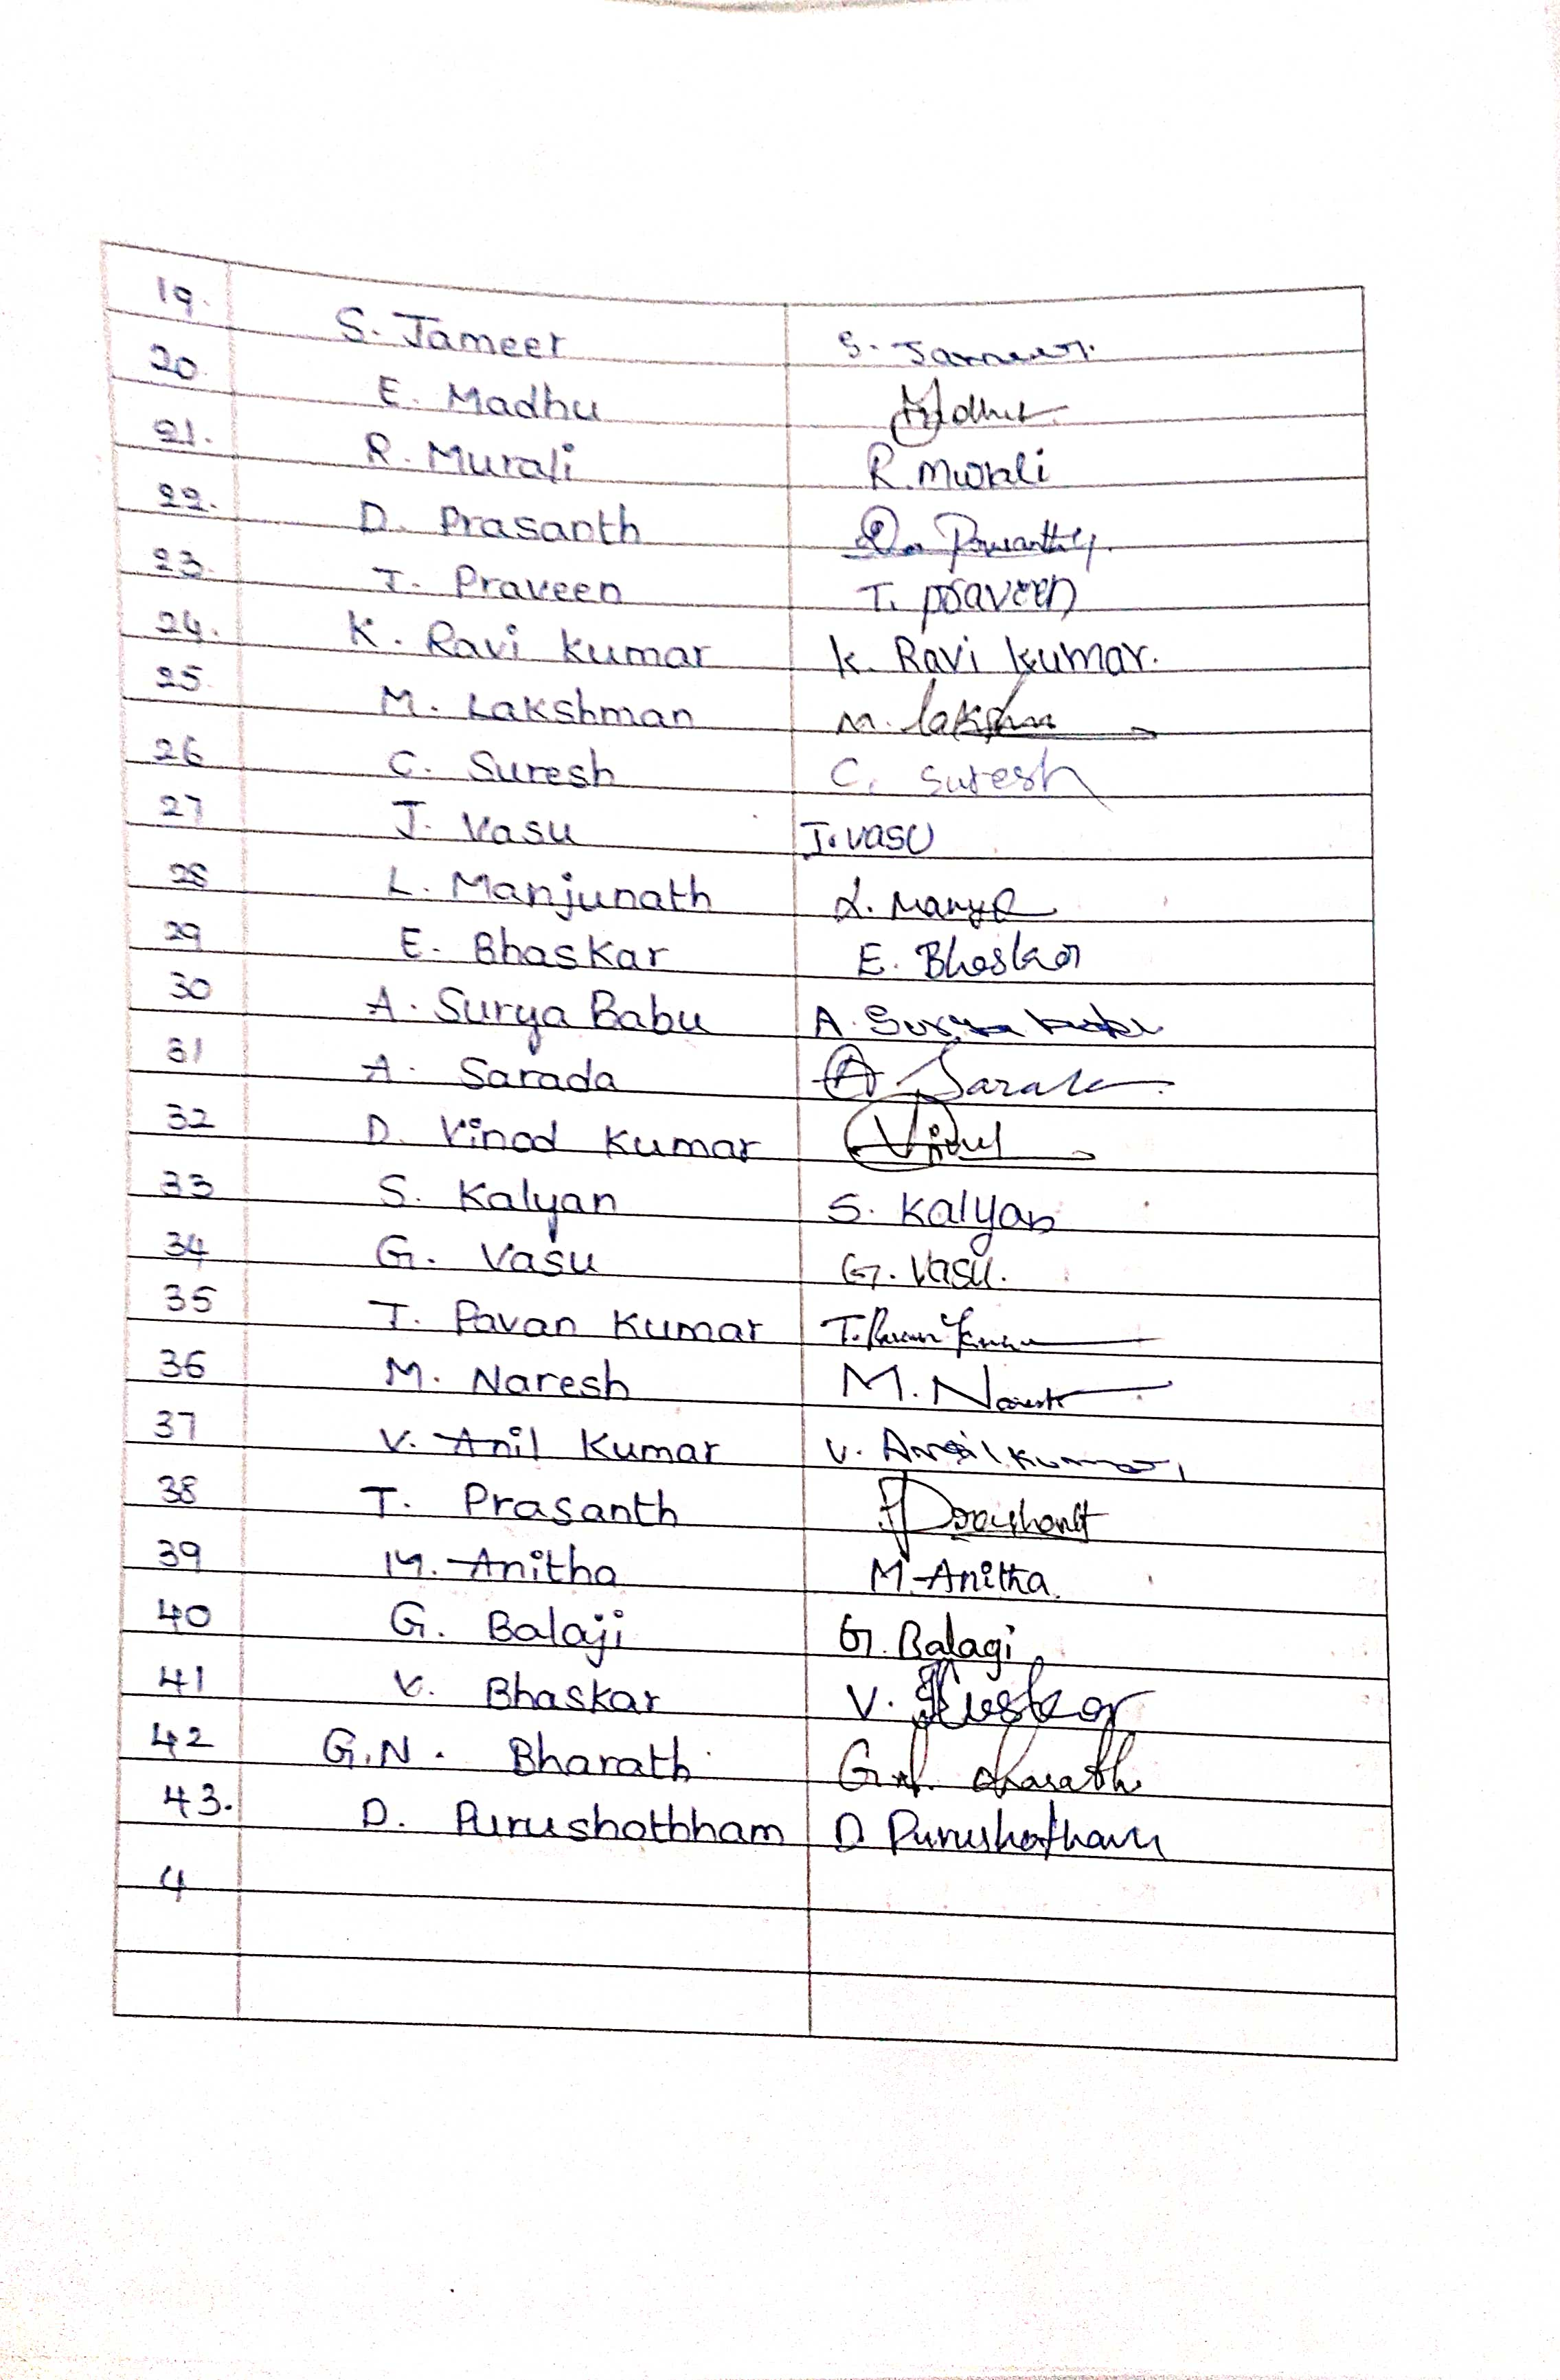 19. S. Jameer S. Jameer.
20. E. Madhu Madhu
21. R. Murali R. Murali
22. D. Prasanth D. Prasanth
23. T. Praveen T. Praveen
24. K. Ravi Kumar K. Ravi Kumar.
25. M. Lakshman M. Lakshm
26 C. Suresh C. Suresh
27 J. Vasu J. Vasu
28 L. Manjunath L.
29 E. Bhaskar E. Bhaskar
30 A. Surya Babu A. Surya babu
31 A. Sarada A. Sarada
32 D. Vinod Kumar
33 S. Kalyan S. Kalyan
34 G. Vasu G. Vasu.
35 T. Pavan Kumar T. Pavan Kumar
36 M. Naresh M. Naresh
37 V. Anil Kumar V. Anil Kumar
38 T. Prasanth Prashant
39 M. Anitha M. Anitha.
40 G. Balaji G. Balagi
41 V. Bhaskar V. Bhaskar
42 G.N. Bharath G.N. Bharath
43. D. Purushothham D Purushotham
4